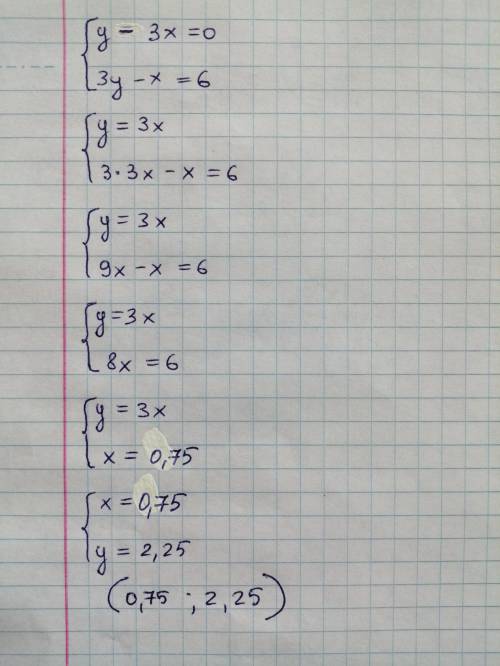 y - 3x = 0
3y - x = 6
y = 3x
3·3x - x = 6
y = 3x
9x - x = 6
y = 3x
8x = 6
y = 3x
x = 0,75
x = 0,75
y = 2,25
(0,75 ; 2,25)